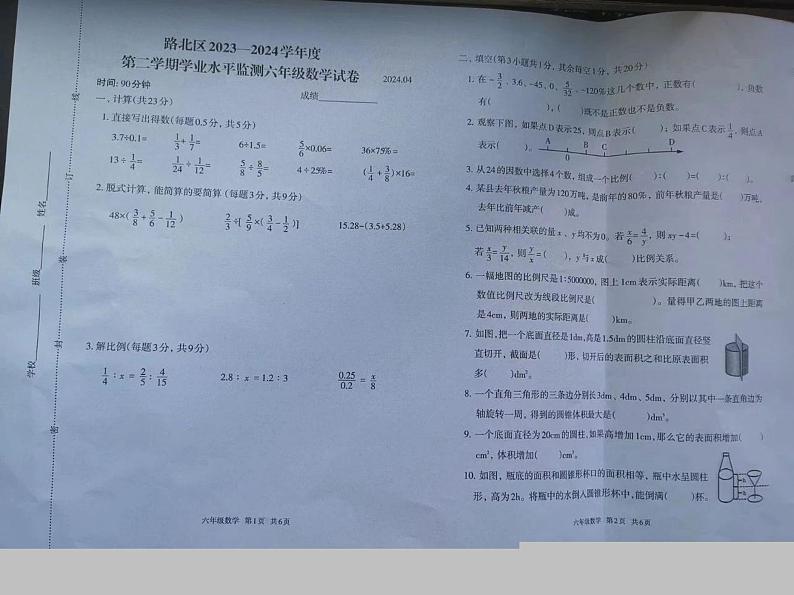 路北区2023—2024学年度
第二学期学业水平监测六年级数学试卷 2024.04
时间: 90分钟 成绩
一、计算(共23分)
1. 直接写出得数(每题0.5分,共5分)
3.7÷0.1= 1/3+1/7= 6÷1.5= 5/6×0.06= 36×75%=
13÷1/4= 1/24÷1/12= 5/8÷8/5= 4÷25%= (1/4+3/8)×16=
2. 脱式计算,能简算的要简算(每题3分,共9分)
48×(3/8+5/6-1/12) 2/3÷[5/9×(3/4-1/2)] 15.28-(3.5+5.28)
3. 解比例(每题3分,共9分)
1/4∶x=2/5∶4/15 2.8∶x=1.2∶3 0.25/0.2=x/8
六年级数学 第1页 共6页
学校 班级 姓名
密 封 装 订 线
二、填空(第3小题共1分,其余每空1分,共20分)
1. 在-3/2、3.6、-45、0、5/32、-120%这几个中,正数有( ),负数
有( ),( )既不是正数也不是负数。
2. 观察下图,如果点D表示25,则点B表示( );如果点C表示1/4,则点A
表示( )。
A B C D
0
3. 从24的因数中选择4个数,组成一个比例( )∶( )=( )∶( )。
4. 某县去年秋粮产量为120万吨,是前年的80%,前年秋粮产量是( )万吨,
去年比前年减产( )成。
5. 已知两种相关联的量x、y均不为0。若x/6=4/y,则xy-4=( );
若x/3=y/14,则y/x=( ),y与x成( )比例关系。
6. 一幅地图的比例尺是1∶5000000,图上1cm表示实际距离( )km,把这个
数值比例尺改为线段比例尺是( )。量得甲乙两地的图上距离
是4cm,则两地的实际距离是( )km。
7. 如图,把一个底面直径是1dm,高是1.5dm的圆柱沿底面直径竖
直切开,截面是( )形,切开后的表面积之和比原表面积
多( )dm²。
8. 一个直角三角形的三条边分别长3dm、4dm、5dm,分别以其中一条直角边为
轴旋转一周,得到的圆锥体积最大是( )dm³。
9. 一个底面直径为20cm的圆柱,如果高增加1cm,那么它的表面积增加( )
cm²,体积增加( )cm³。
10. 如图,瓶底的面积和圆锥形杯口的面积相等,瓶中水呈圆柱
形,高为2h。将瓶中的水倒入圆锥形杯中,能倒满( )杯。
h
h
六年级数学 第2页 共6页